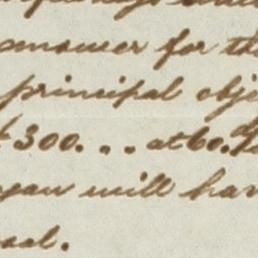 answer for th
principal obje
$300. . . at 60. d
you will hav